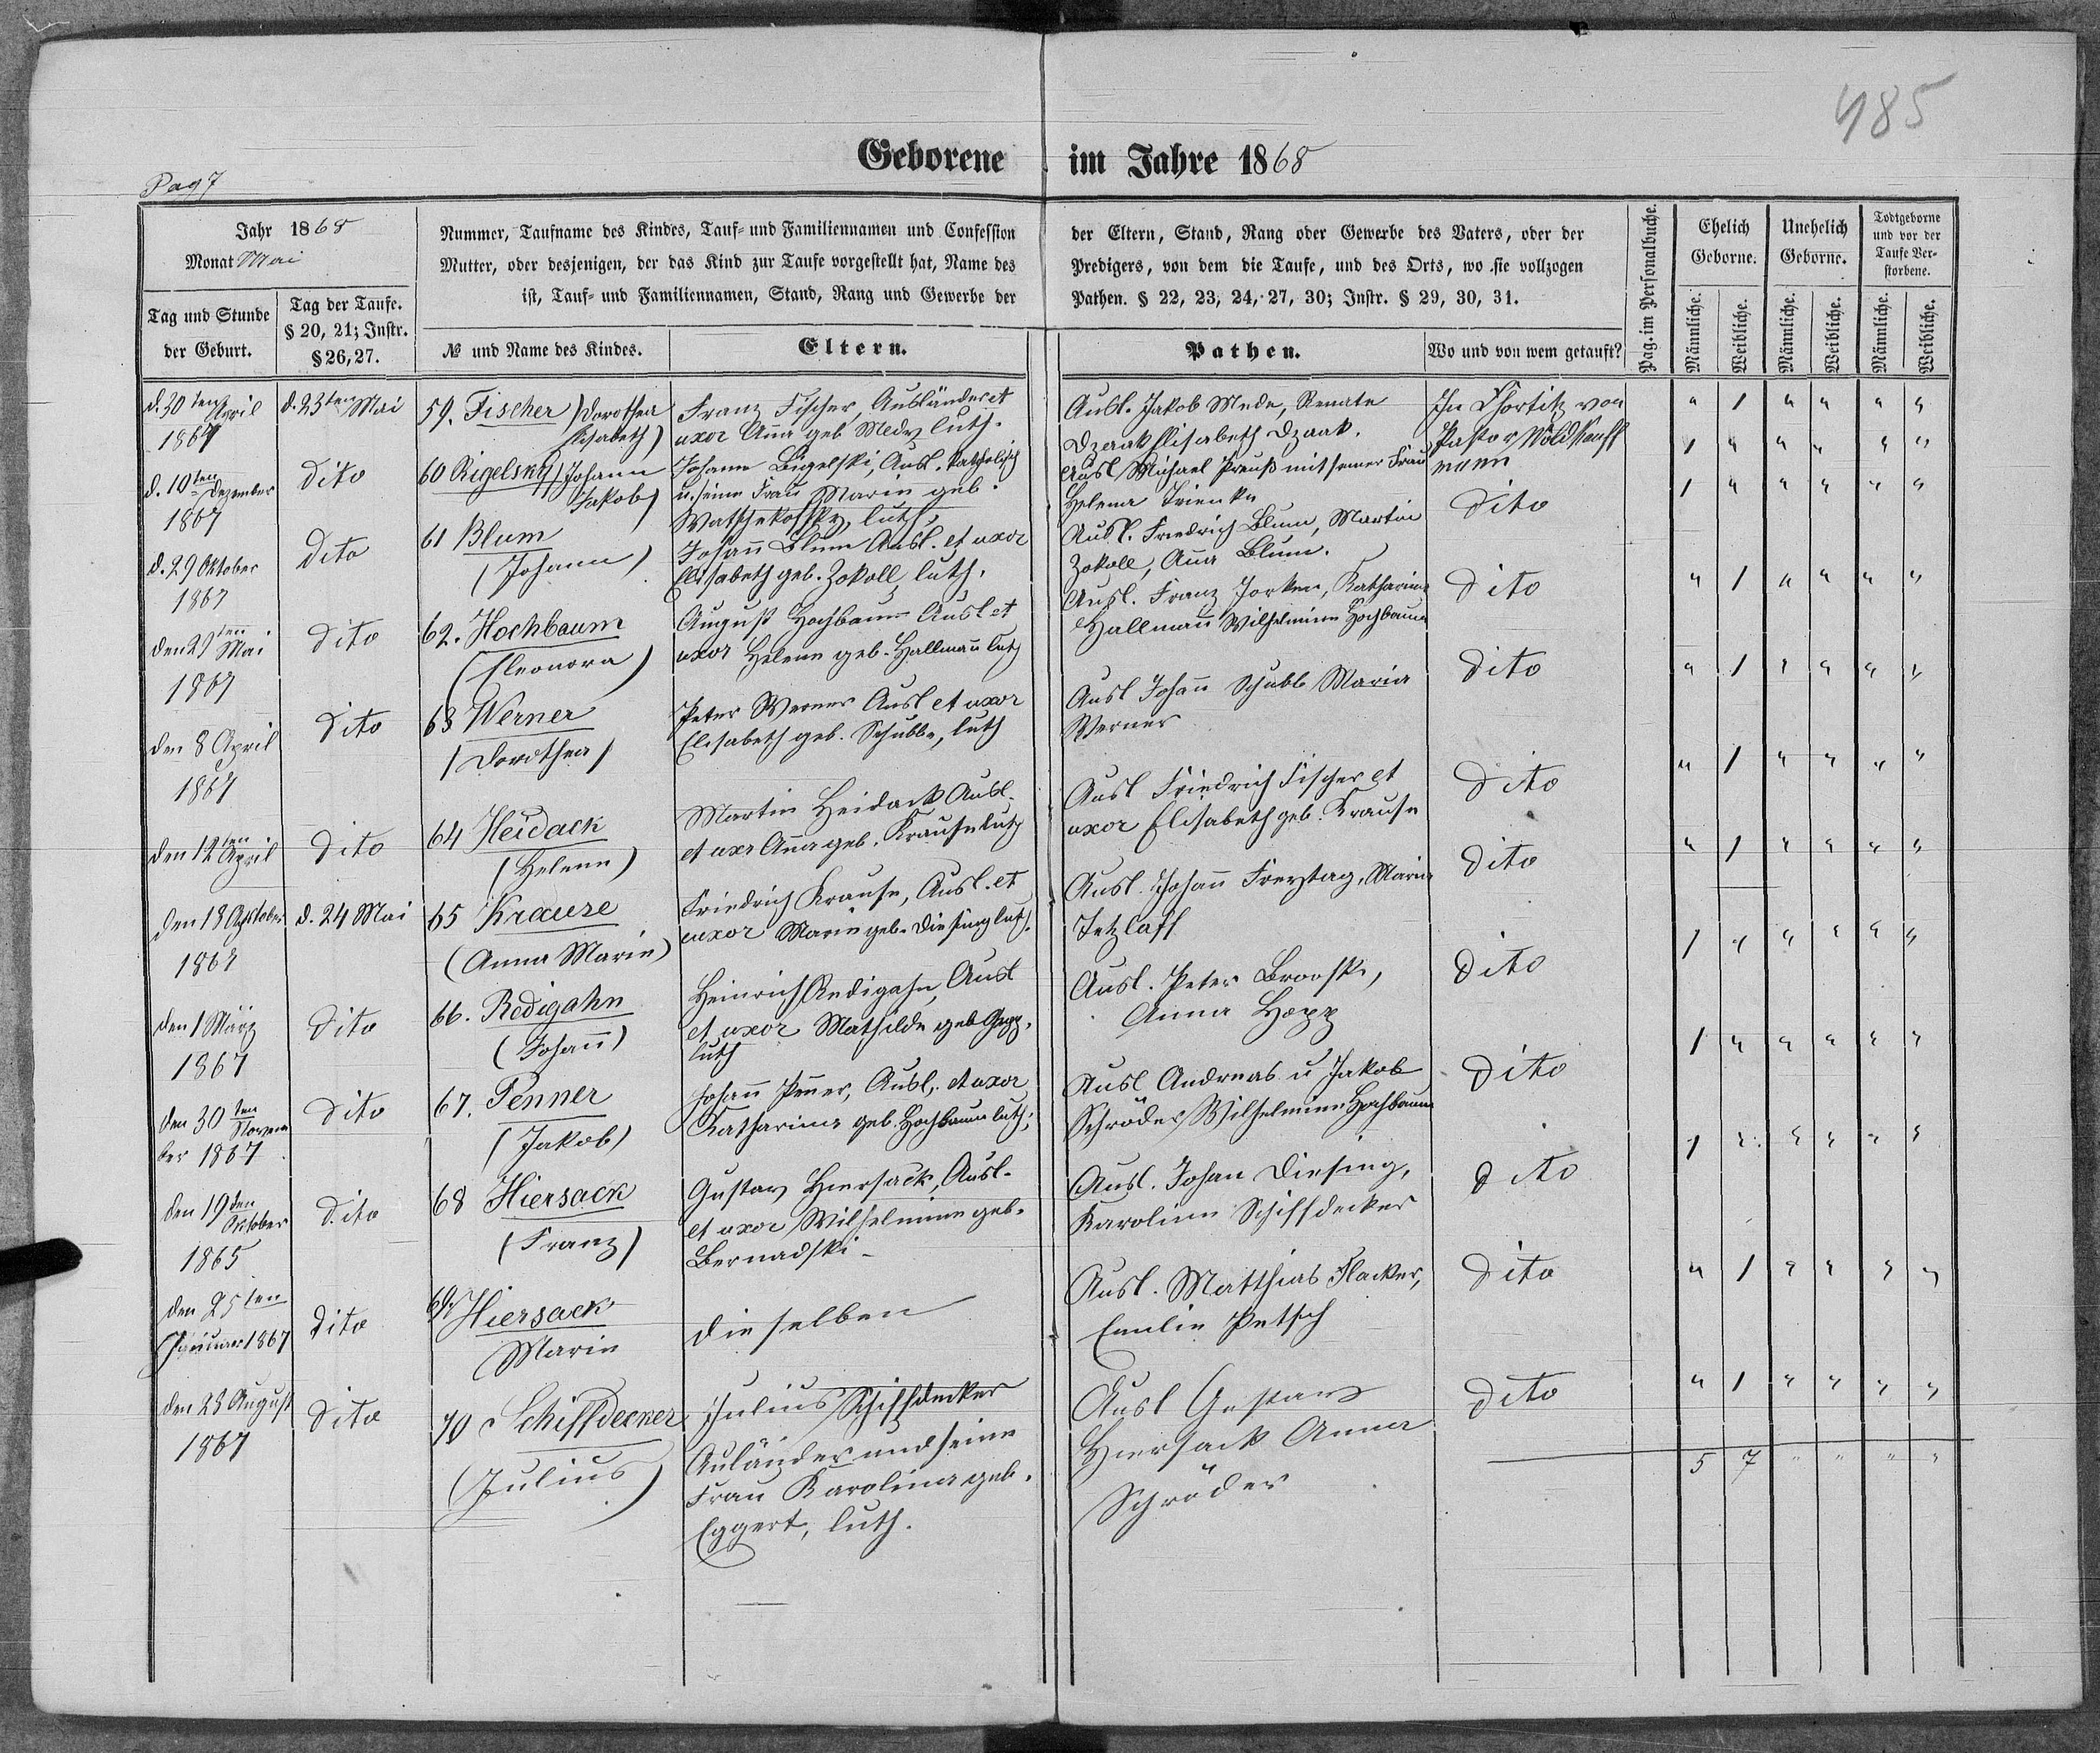 485
Geborene im Jahre 1868
Pag 7
Jahr 1868
Monat Mai
Tag und Stunde
der Geburt.
Tag der Taufe.
§ 20, 21; Instr.
§ 26, 27.
Nummer, Taufname des Kindes, Tauf- und Familiennamen und Confession
Mutter, oder desjenigen, der das Kind zur Taufe vorgestellt hat, Name des
ist, Tauf- und Familiennamen, Stand, Rang und Gewerbe der
№ und Name des Kindes.
Eltern.
der Eltern, Stand, Rang oder Gewerbe des Vaters, oder der
Predigers, von dem die Taufe, und des Orts, wo sie vollzogen
Pathen. § 22, 23, 24, 27, 30; Instr. § 29, 30, 31.
Pathen.
Wo und von wem getauft?
Pag. im Personalbuche.
Ehelich
Geborne.
Unehelich
Geborne.
Todtgeborne
und vor der
Taufe Ver-
storbene.
Männliche. Weibliche. Männliche. Weibliche. Männliche. Weibliche.
d. 30 ten April
1867
d. 23ten Mai
59. Fischer (Dorothea
Elisabeth)
Franz Fischer, Ausländer et
uxor Anna geb luth.
Ausl. Jakob Mede, Renate
Dzaak Elisabeth Dzaak.
In Chortitz von
Pastor Höldtkauff
mann
" 1 " " " "
d. 10ten Dezember
1867
Dito
60 Rigelsky (Johann
Jakob)
Johann Bigelski, Ausl. katholisch
u. seine Frau Marie geb.
luth.
Ausl Michael Preuß mit seiner Frau
Helena Trienke
1 " " " " "
d. 29 Oktober
1867
Dito
61 Blum
(Johann)
Johann Blum Ausl. et uxor
Elisabeth geb. Zokoll, luth.
Ausl. Friedrich Blum, Martin
Zokoll, Anna Blum.
Dito
1 " " " " "
den 29ten Mai
1867
Dito
62. Hochbaum
(Eleonora)
August Hochbaum Ausl et
uxor Helene geb. Hallmann luth
Ausl. Franz Jorken, Katharina
Hallmann Wilhelmine Hochbaum
Dito
" 1 " " " "
den 8 April
1867
Dito
63 Werner
(Dorothea)
Peter Werner Ausl et uxor
Elisabeth geb. Schubbe, luth
Ausl Johann Schubb Maria
Werner
Dito
" 1 " " " "
den 12ten April
Dito
64 Heidack
(Helene)
Martin Heidack Ausl.
et uxor Anna geb. Krause luth
Ausl Friedrich Fischer et
uxor Elisabeth geb. Krause
Dito
" 1 " " " "
den 18 Oktober
1867
d. 24 Mai
65 Krause
(Anna Marie)
Friedrich Krause, Ausl. et
uxor Marie geb. Diesing luth.
Ausl. Johann Freytag, Marie
Tetzlaff
Dito
" 1 " " " "
den 1 März
1867
Dito
66. Redigahn
(Johann)
Heinrich Redigahn, Ausl
et uxor Mathilde geb
luth
Ausl. Peter
Anna Hepp
Dito
1 " " " " "
den 30 ten Novem
ber 1867
Dito
67. Penner
(Jakob)
Johann Penner, Ausl. et uxor
Katharina geb. Hochbaum luth;
Ausl Andreas u Jakob
Schröder, Wilhelmine Hochbaum
Dito
1 " " " " "
den 19 den Oktober
1865
Dito
68 Hiersack
(Franz)
Gustav Hiersack, Ausl.
et uxor Wilhelmine geb.
Bernadski
Ausl. Johan Diesing,
Karoline Schiffdecker
Dito
1 " " " " "
den 25 ten
Januar 1867
Dito
69. Hiersack
(Marie
dieselben
Ausl. Matthias Flacker,
Emilie Petsch
Dito
" 1 " " " "
den 28 August
1867
Dito
70 Schiffdecker
(Julius)
Julius Schiffdecker
Auländer und seine
Frau Karolina geb.
Eggert, luth.
Ausl Gustav
Hiersack Anna
Schröder
Dito
" 1 " " " "
5 7 " " " "